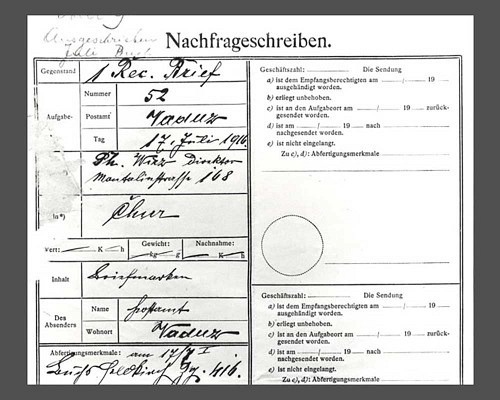 Ausgeschrieben
Juli
Nachfrageschreiben.
Gegenstand
1 Rec. Brief
Aufgabs-
Nummer
52
Postamt
Vaduz
Tag
17. Juli 1916
Ph. Direktor
Montalinstrasse 168
In*)
Chur
Wert: K h
Gewicht: kg g
Nachnahme: K h
Inhalt
Briefmarken
Des Absenders
Name
Postamt
Wohnort
Vaduz
Abfertigungsmerkmale: am 17/7 I
Feldkirch 416.
Geschäftszahl: Die Sendung
a) ist dem Empfangsberechtigten am / 19
ausgehändigt worden.
b) erliegt unbehoben.
c) ist an den Aufgabsort am / 19 zurück-
gesendet worden.
d) ist am / 19 nach
nachgesendet worden.
e) ist nicht eingelangt.
Zu c), d): Abfertigungsmerkmale
Geschäftszahl: Die Sendung
a) ist dem Empfangsberechtigten am / 19
ausgehändigt worden.
b) erliegt unbehoben.
c) ist an den Aufgabsort am / 19 zurück-
gesendet worden.
d) ist am / 19 nach
nachgesendet worden.
e) ist nicht eingelangt.
Zu c), d): Abfertigungsmerkmale